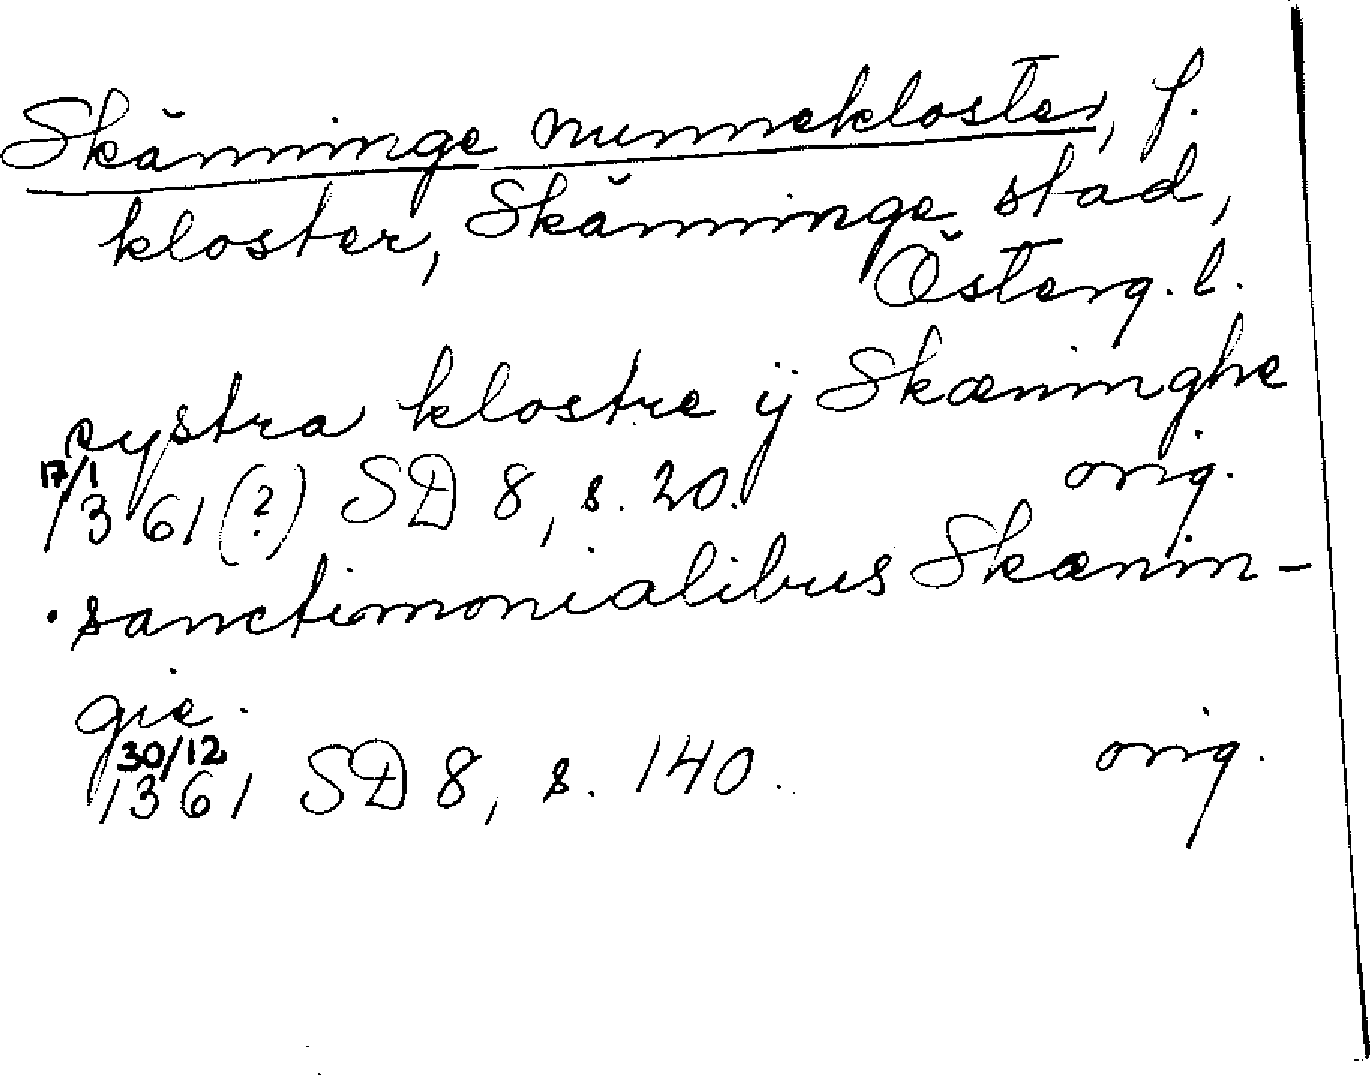 Skänninge nunnekloster, f.
kloster, Skänninge stad,
Österg. l.
systra klostre ij Skæninghe
17/1 1361 (?) SD 8, s. 20. orig.
· sanctimonialibus Skænin-
gie.
30/12 1361 SD 8, s. 140. orig.